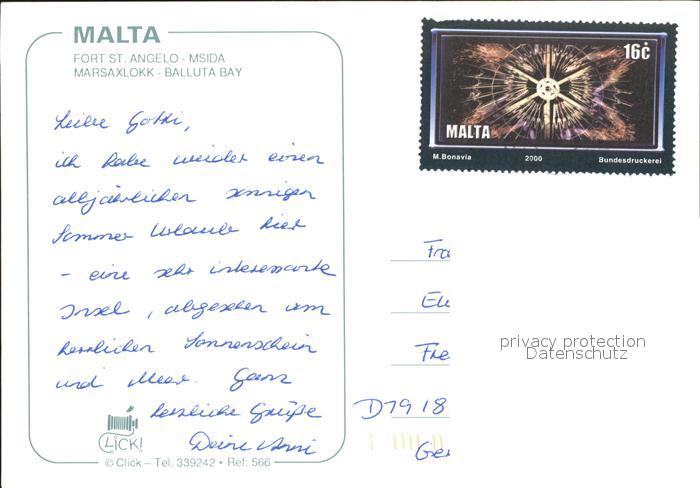 MALTA
FORT ST. ANGELO - MSIDA
MARSAXLOKK - BALLUTA BAY
16c
MALTA
M.Bonavia 2000 Bundesdruckerei
Liebe
ich habe wieder einen
alljährlichen sonnigen
Sommer Urlaub hier
- eine sehr interessante
Insel, abgesehen vom
herrlichen Sonnenschein
und Meer. Ganz
herzliche Grüße
Deine
Fra
Fre
D7918
Ger
privacy protection
Datenschutz
CLICK!
© Click – Tel. 339242 • Ref: 566